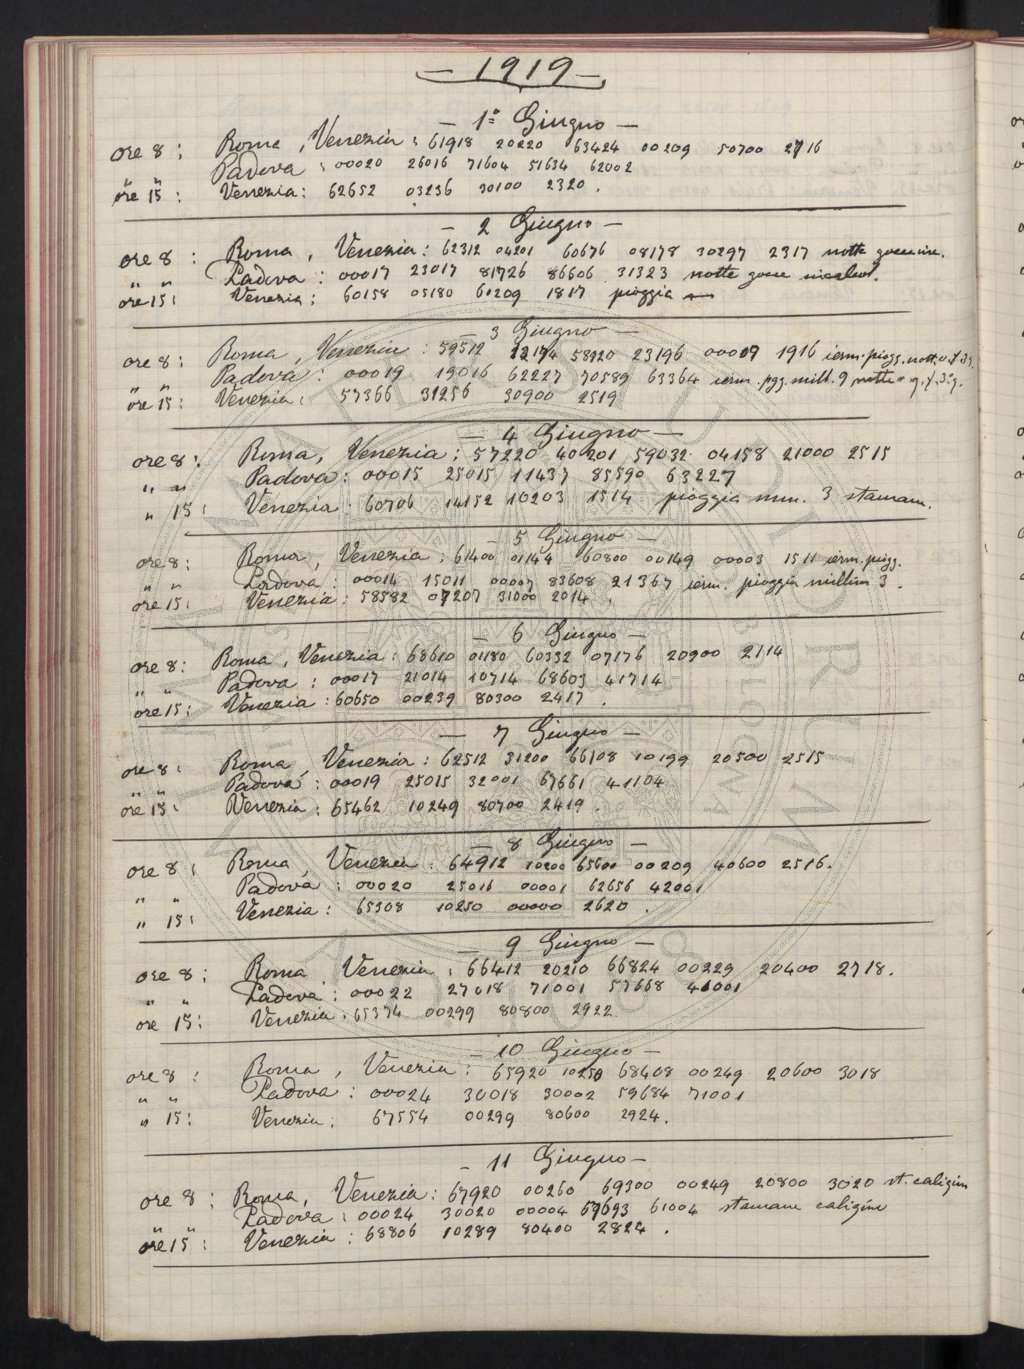 — 1919 —
— 1º Giugno —
ore 8 : Roma, Venezia : 61918 20220 63424 00209 50700 2716
" " Padova : 00020 26016 71604 51634 62002
ore 15 : Venezia : 62652 03236 30100 2320.
— 2 Giugno —
ore 8 : Roma, Venezia : 62312 04201 60676 08178 30297 2317 notte
" " Padova : 00017 23017 81726 86606 31323 notte gocce
ore 15 : Venezia : 60158 05180 60209 1817 pioggia
— 3 Giugno —
ore 8 : Roma, Venezia : 59512 22174 58920 23196 00009 1916 ierm. piogg. nott.
" " Padova : 00019 19016 62227 70589 63364 ierm. pgg. mill. 9 notte
ore 15 : Venezia : 57366 31256 30900 2519
— 4 Giugno —
ore 8 : Roma, Venezia : 57220 40201 59032 04158 21000 2515
" " Padova : 00015 25015 11437 85590 63227
" 15 : Venezia : 60706 14152 10203 1514 pioggia mm. 3 stamane.
— 5 Giugno —
ore 8 : Roma, Venezia : 61400 01144 60800 00149 00003 1511 ierm. piogg.
" " Padova : 00014 15011 00007 83608 21367 ierm. pioggia millim 3.
ore 15 : Venezia : 58582 07207 31000 2014.
— 6 Giugno —
ore 8 : Roma, Venezia : 68610 01180 60332 07176 20900 2114
" " Padova : 00017 21014 10714 68603 41714
ore 15 : Venezia : 60650 00239 80300 2417.
— 7 Giugno —
ore 8 : Roma Venezia : 62512 31200 66108 10199 20500 2515
" " Padova : 00019 25015 32001 67661 41104
ore 15 : Venezia : 65462 10249 80700 2419.
— 8 Giugno —
ore 8 : Roma Venezia : 64912 10200 65600 00209 40600 2516.
" " Padova : 00020 25016 00001 62656 42001
" 15 : Venezia : 65308 10250 00000 2620.
— 9 Giugno —
ore 8 : Roma Venezia : 66412 20210 66824 00229 20400 2718.
" " Padova : 00022 27018 71001 57668 41001
ore 15 : Venezia : 65374 00299 80800 2922
— 10 Giugno —
ore 8 : Roma, Venezia : 65920 10250 68408 00249 20600 3018
" " Padova : 00024 30018 30002 59684 71001
" 15 : Venezia : 67554 00299 80600 2924.
— 11 Giugno —
ore 8 : Roma, Venezia : 67920 00260 69300 00249 20800 3020 st. caligine
" " Padova : 00024 30020 00004 67693 61004 stamane caligine
ore 15 : Venezia : 68806 10289 80400 2824.